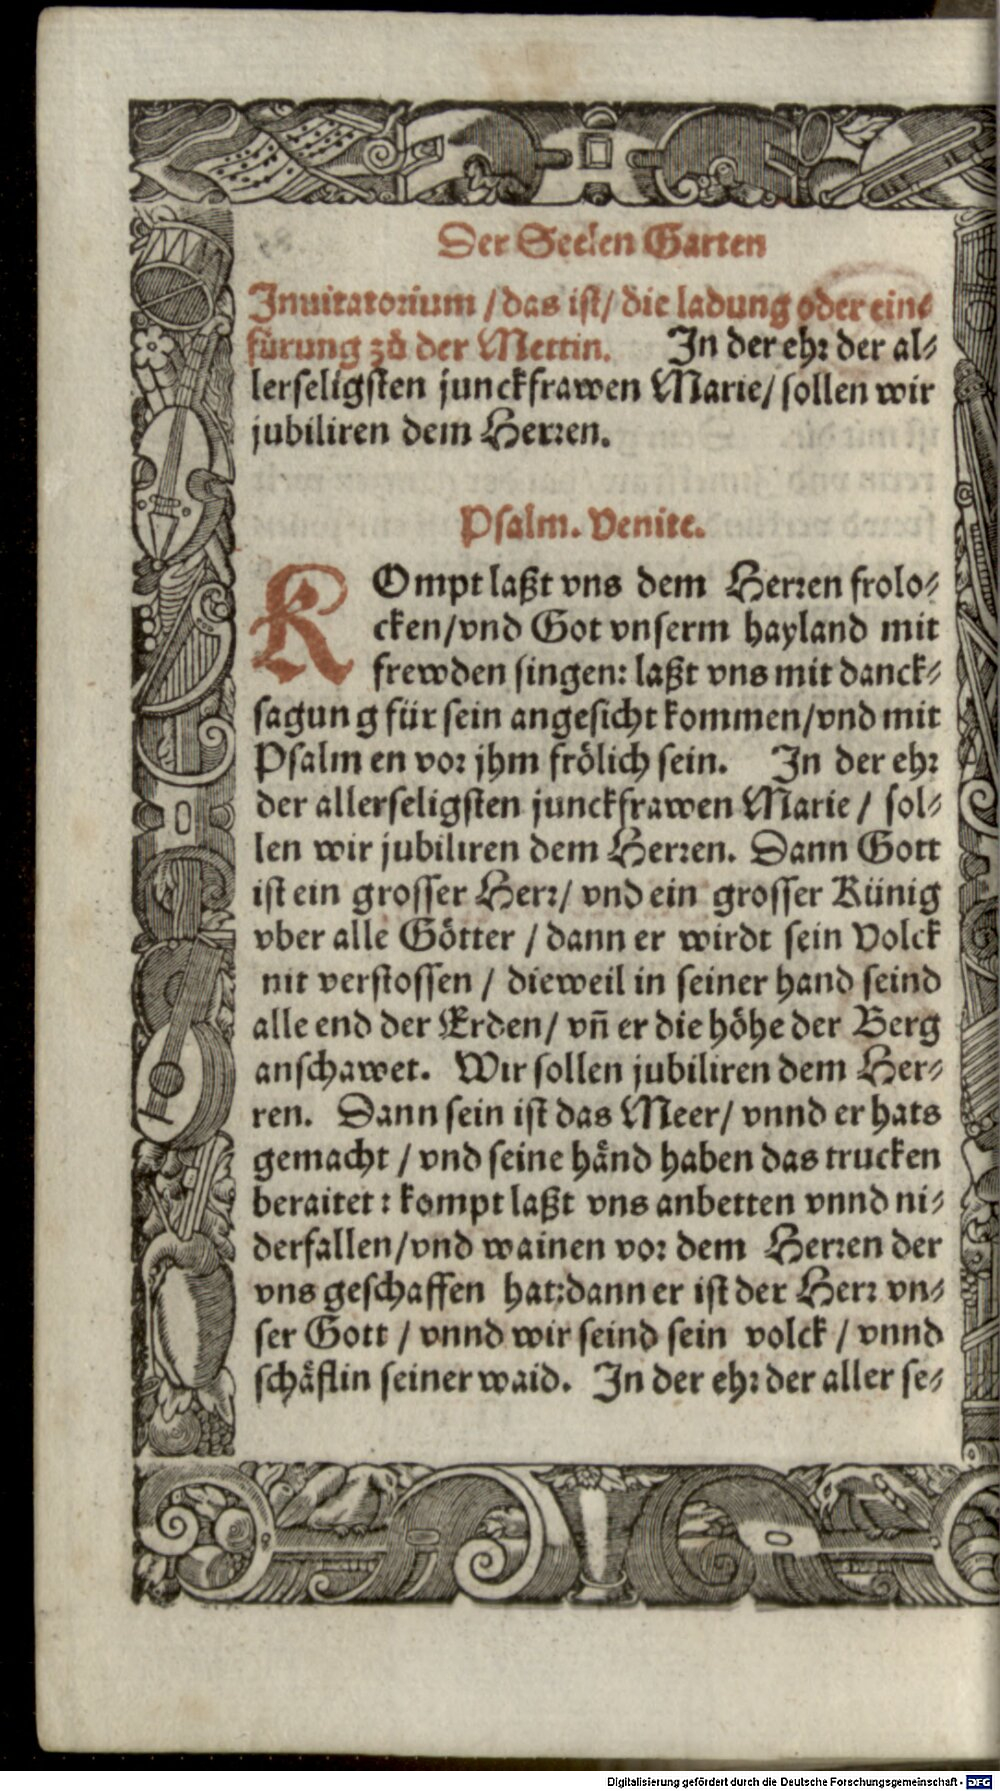 Der Seelen Garten
Inuitatorium / das ist / die ladung oder ein⸗
fürung zů der Mettin. In der ehr der al⸗
lerseligsten junckfrawen Marie / sollen wir
jubiliren dem Herren.
Psalm. Venite.
KOmpt laßt vns dem Herren frolo⸗
cken / vnd Got vnserm hayland mit
frewden singen: laßt vns mit danck⸗
sagung für sein angesicht kommen / vnd mit
Psalmen vor jhm frölich sein. In der ehr
der allerseligsten junckfrawen Marie / sol⸗
len wir jubiliren dem Herren. Dann Gott
ist ein grosser Herr / vnd ein grosser Künig
vber alle Götter / dann er wirdt sein Volck
nit verstossen / dieweil in seiner hand seind
alle end der Erden / vñ er die höhe der Berg
anschawet. Wir sollen jubiliren dem Her⸗
ren. Dann sein ist das Meer / vnnd er hats
gemacht / vnd seine händ haben das trucken
beraitet: kompt laßt vns anbetten vnnd ni⸗
derfallen / vnd wainen vor dem Herren der
vns geschaffen hat: dann er ist der Herr vn⸗
ser Gott / vnnd wir seind sein volck / vnnd
schäflin seiner waid. In der ehr der aller se⸗
Digitalisierung gefördert durch die Deutsche Forschungsgemeinschaft - DFG